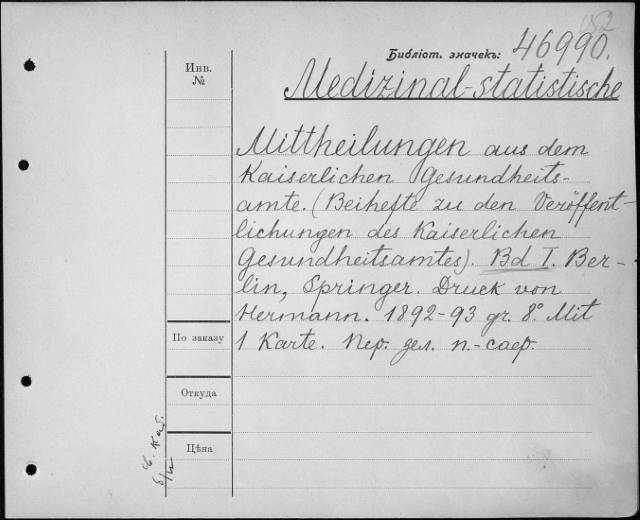 152
Библіот. значекъ: 46990.
Инв.
№
Medizinal-statistische
Mittheilungen aus dem
Kaiserlichen Gesundheits-
amte. (Beihefte zu den Veröffent-
lichungen des Kaiserlichen
Gesundheitsamtes). Bd I. Ber-
lin, Springer. Druck von
Hermann. 1892-93 gr. 8° Mit
1 Karte. Пер. зел. п.-саф.
По заказу
Откуда
Цѣна